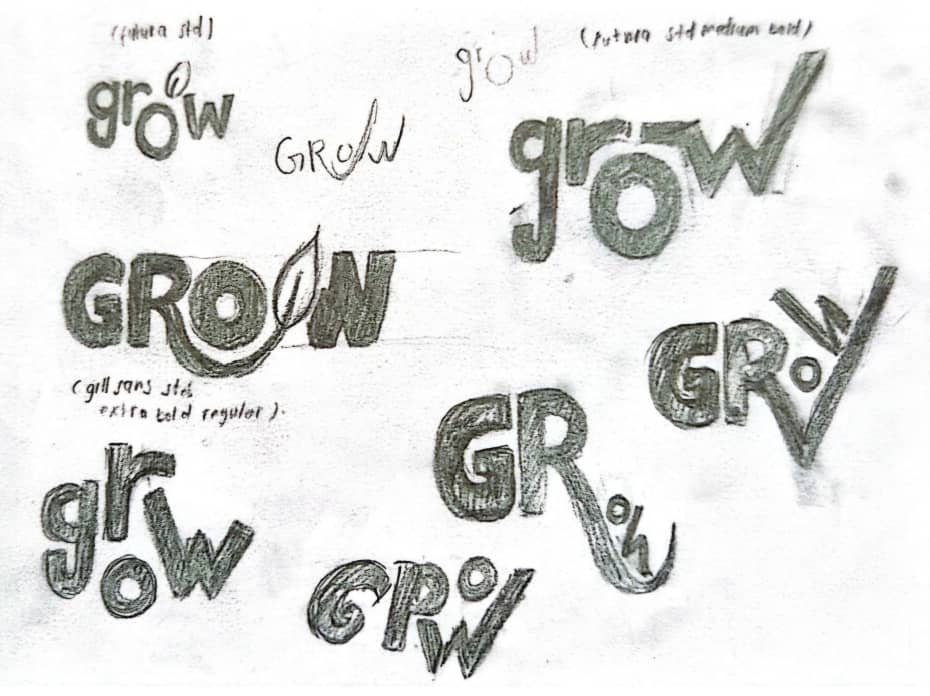 (futura std)
grow
grow
(futura std medium bold)
GROW
grow
GROW
GROW
(gill sans std
extra bold regular).
GROW
grow
GROW